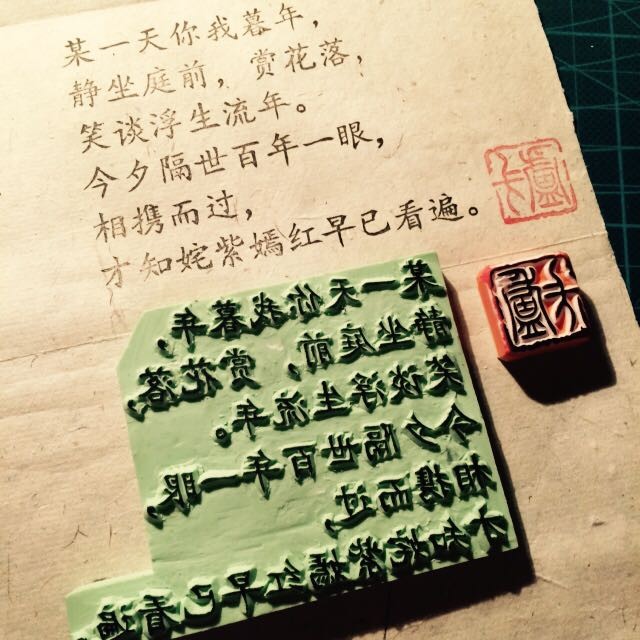 某一天你我暮年，
静坐庭前，赏花落，
笑谈浮生流年。
今夕隔世百年一眼，
相携而过，
才知姹紫嫣红早已看遍。
某一天你我暮年，
静坐庭前，赏花落，
笑谈浮生流年。
今夕隔世百年一眼，
相携而过，
才知姹紫嫣红早已看遍